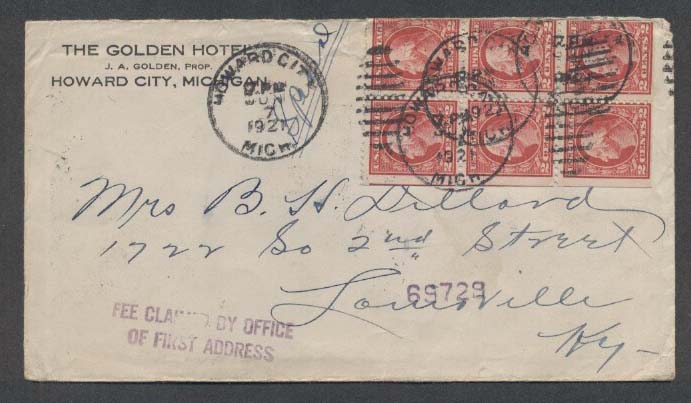 THE GOLDEN HOTEL
J. A. GOLDEN, PROP.
HOWARD CITY, MICHIGAN
HOWARD CITY
7
1921
MICH.
HOWARD CITY
1921
MICH.
2 CENTS 2
2 CENTS 2
Mrs B. H. Dillard
1722 So 2nd Street
Louisville
69729
Ky-
FEE CLAIMED BY OFFICE
OF FIRST ADDRESS